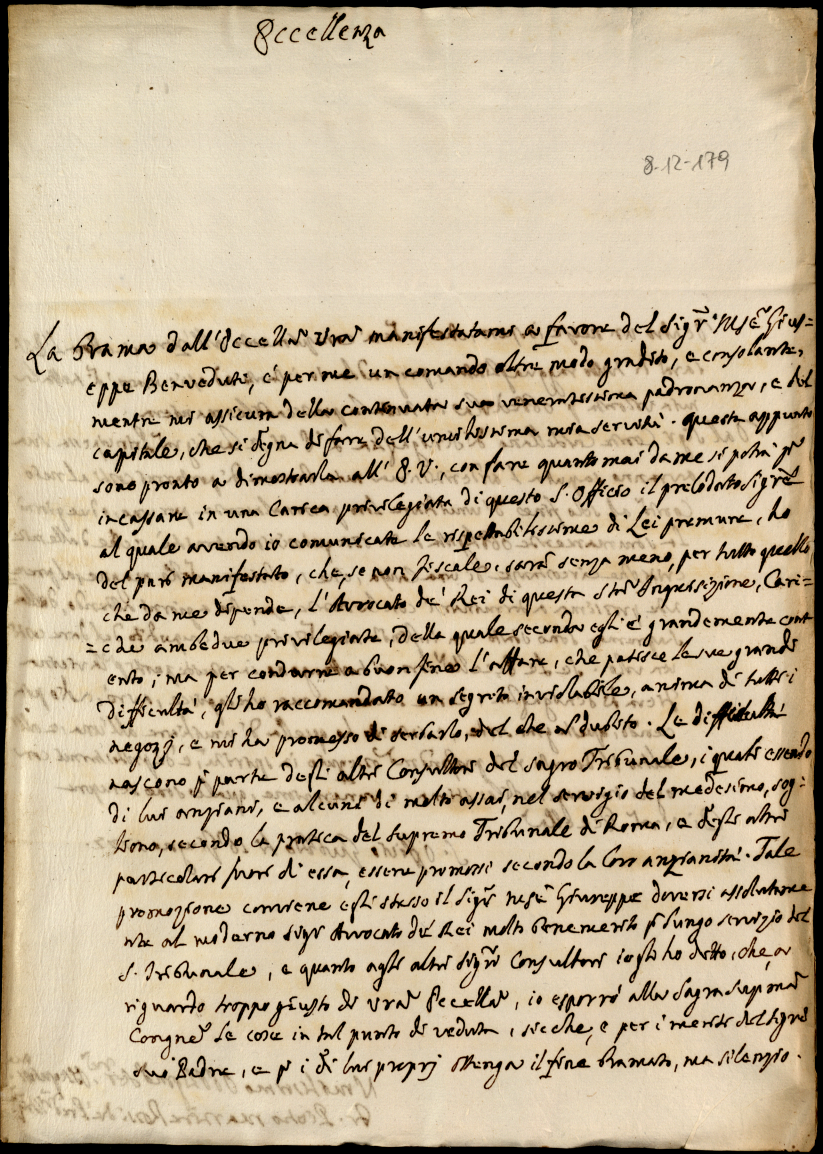 Eccellenza
8-12-179
La brama dall'Eccellã Vrã manifestatami a favore del Sigr̃ Mse Gius=
eppe Benveduti, é per me un comando oltre modo gradito, e consolante,
mentre mi assicura della continuata sua veneratissima padronanza, e del
capitale, che si degna di fare dell'umilissima mia servitù. Questa appunto
sono pronto a dimostrarla all'E.V., con fare quanto mai da me si potrà pr
incassare in una Carica privilegiata di questo S. Officio il prelodato Sigre
al quale avendo io comunicate le rispettabilissime di Lei premure, ho
del pari manifestato, che, se non fiscale, sarà senza meno, per tutto quello
che da me dipende, l'Avvocato de' Rei di questa Stã Inquisizione, Cari=
=che ambedue privilegiate, della quale seconda egli é grandemente cont
ento, ma per condurre a buon fine l'affare, che patisce le sue grandi
difficultà, gli ho raccomandato un segreto inviolabile, anima di tutti i
negozj, e mi ha promesso di serbarlo, del che ñ dubito. Le difficultà
nascono p parte degli altri Consultori del sagro Tribunale, i quali essendo
di lui anziani, e alcuni di molto assai, nel servigio del medesimo, sog=
liono, secondo la pratica del supremo Tribunale di Roma, e degli altri
particolari fuori di essa, essere promossi secondo la loro anzianità. Tale
promozione conviene egli stesso il Sigr̃ Mse Giuseppe doversi assolutame
nte al moderno Sigr Avvocato de' Rei molto benemerito p lungo servizio del
S. Tribunale, e quanto agli altri Sigri Consultori io gli ho detto, che, a
riguardo troppo giusto di Vrã Eccellã, io esporrò alla Sagra Supma
Congne le cose in tal punto di veduta, sicche, e per i meriti del Sigre
suo Padre, e p i di lui proprj ottenga il fine bramato, ma silenzio.